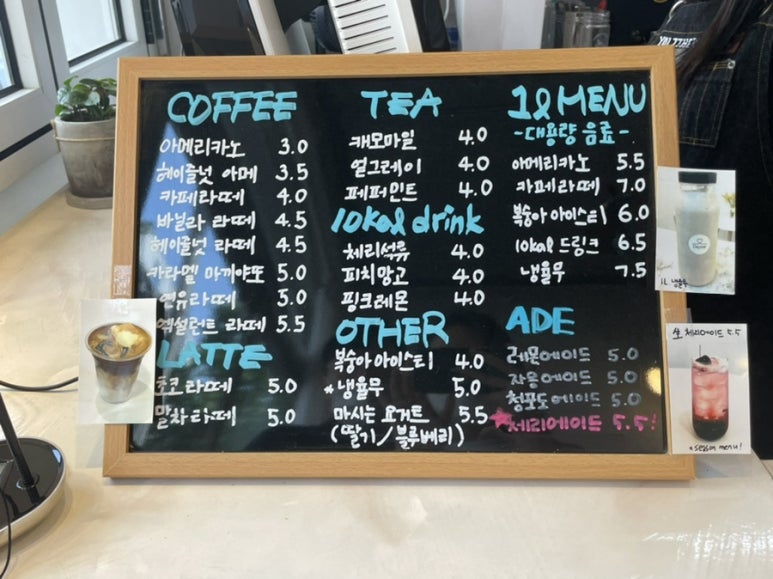 COFFEE
아메리카노 3.0
헤이즐넛 아메 3.5
카페라떼 4.0
바닐라 라떼 4.5
헤이즐넛 라떼 4.5
카라멜 마끼야또 5.0
연유라떼 5.0
엑설런트 라떼 5.5
LATTE
초코라떼 5.0
말차라떼 5.0
TEA
캐모마일 4.0
얼그레이 4.0
페퍼민트 4.0
10kal drink
체리석류 4.0
피치망고 4.0
핑크레몬 4.0
OTHER
복숭아 아이스티 4.0
*냉율무 5.0
마시는 요거트 5.5
(딸기/블루베리)
1l MENU
-대용량 음료-
아메리카노 5.5
카페라떼 7.0
복숭아 아이스티 6.0
10kal 드링크 6.5
냉율무 7.5
ADE
레몬에이드 5.0
자몽에이드 5.0
청포도에이드 5.0
★체리에이드 5.5!
1L 냉율무
生 체리에이드 5.5
*season menu!